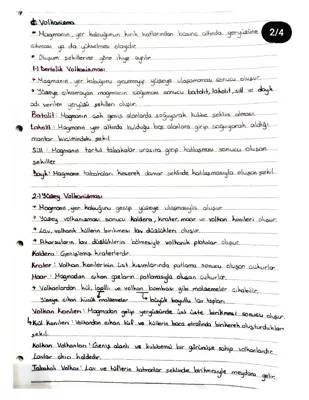 Volkanizma
2/4
* Magmanın, yer kabuğunun kırık hatlarından basınç altında yeryüzüne
çıkması ya da yükselmesi olayıdır.
* Oluşum şekillerine göre ikiye ayrılır.
1-) Derinlik Volkanizması
* Magmanın, yer kabuğunu geçemeyip yüzeye ulaşamaması sonucu oluşur.
* Yüzeye çıkamayan magmanın soğuması sonucu batolit, lakolit, sill ve dayk
adı verilen yeryüzü şekilleri oluşur.
Batolit: Magmanın çok geniş alanlarda soğuyarak kubbe şeklini alması.
Lakolit: Magmanın yer altında bulduğu boş alanlara girip soğuyarak aldığı
mantar biçimindeki şekil.
Sill: Magmanın tortul tabakalar arasına girip katılaşması sonucu oluşan
şekiller
Dayk: Magmanın tabakaları keserek damar şeklinde katılaşmasıyla oluşan şekil.
2-) Yüzey Volkanizması
* Magmanın, yer kabuğunu geçip yüzeye ulaşmasıyla oluşur.
* Yüzey volkanizması sonucu kaldera, krater, maar ve volkan konileri oluşur.
* Lav, volkanik küllerin birikmesi lav düzlükleri oluşur.
* Akarsuların lav düzlüklerini bölmesiyle volkanik platolar oluşur.
Kaldera: Genişlemiş kraterlerdir.
Krater: Volkan konilerinin üst kısımlarında patlama sonucu oluşan çukurlar.
Maar: Magmadan çıkan gazların patlamasıyla oluşan çukurlar.
* Volkanlardan kül, lapilli ve volkan bombası gibi malzemeler çıkabilir.
Yüzeye çıkan küçük malzemeler
büyük boyutlu lav topları
Volkan Konileri: Magmadan gelip yeryüzünde üst üste birikmesi sonucu oluşur.
Kül Konileri: Volkandan çıkan tüf ve küllerin baca etrafında birikerek oluşturdukları
şekil.
Kalkan Volkanları: Geniş alanlı ve kubbemsi bir görünüşe sahip volkanlardır.
Lavlar akıcı haldedir.
Tabakalı Volkan: Lav ve tüllerin katmanlar şeklinde birikmesiyle meydana gelir.